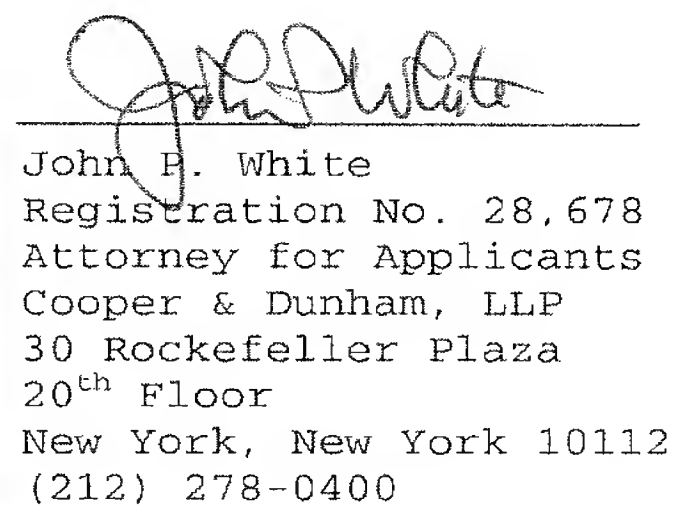 John P White
John P. White
Registration No. 28,678
Attorney for Applicants
Cooper & Dunham, LLP
30 Rockefeller Plaza
20th Floor
New York, New York 10112
(212) 278-0400